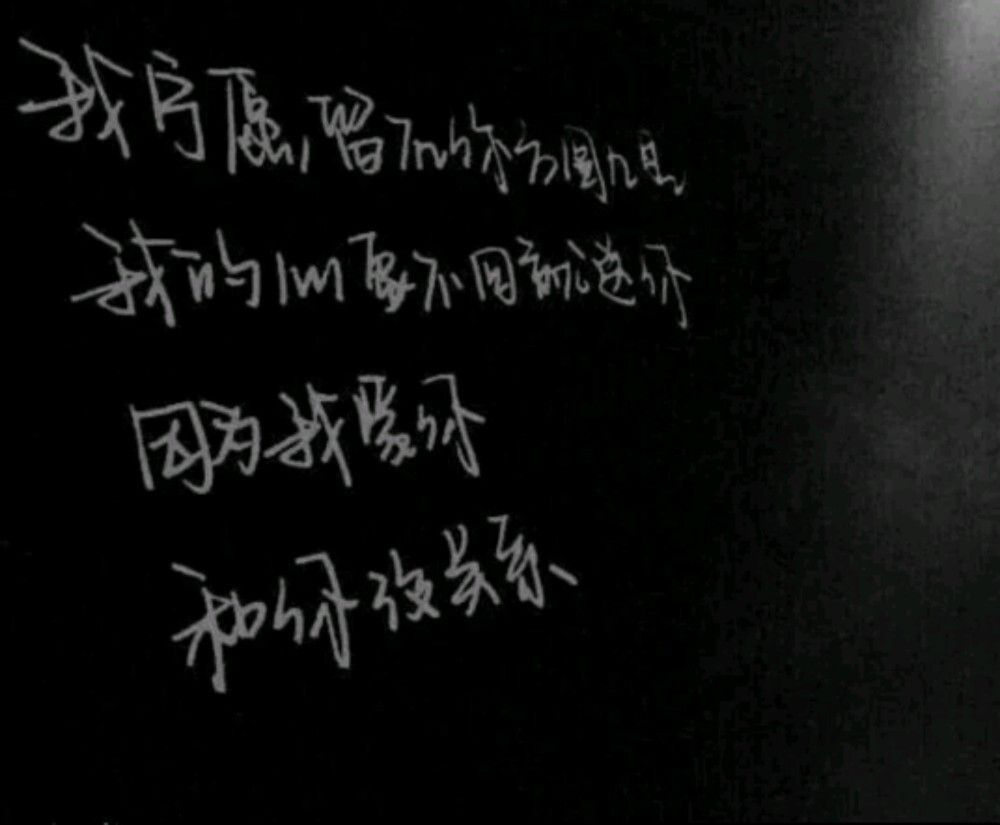 我宁愿留在你方圆几里
我的心要不回就送你
因为我爱你
和你没关系